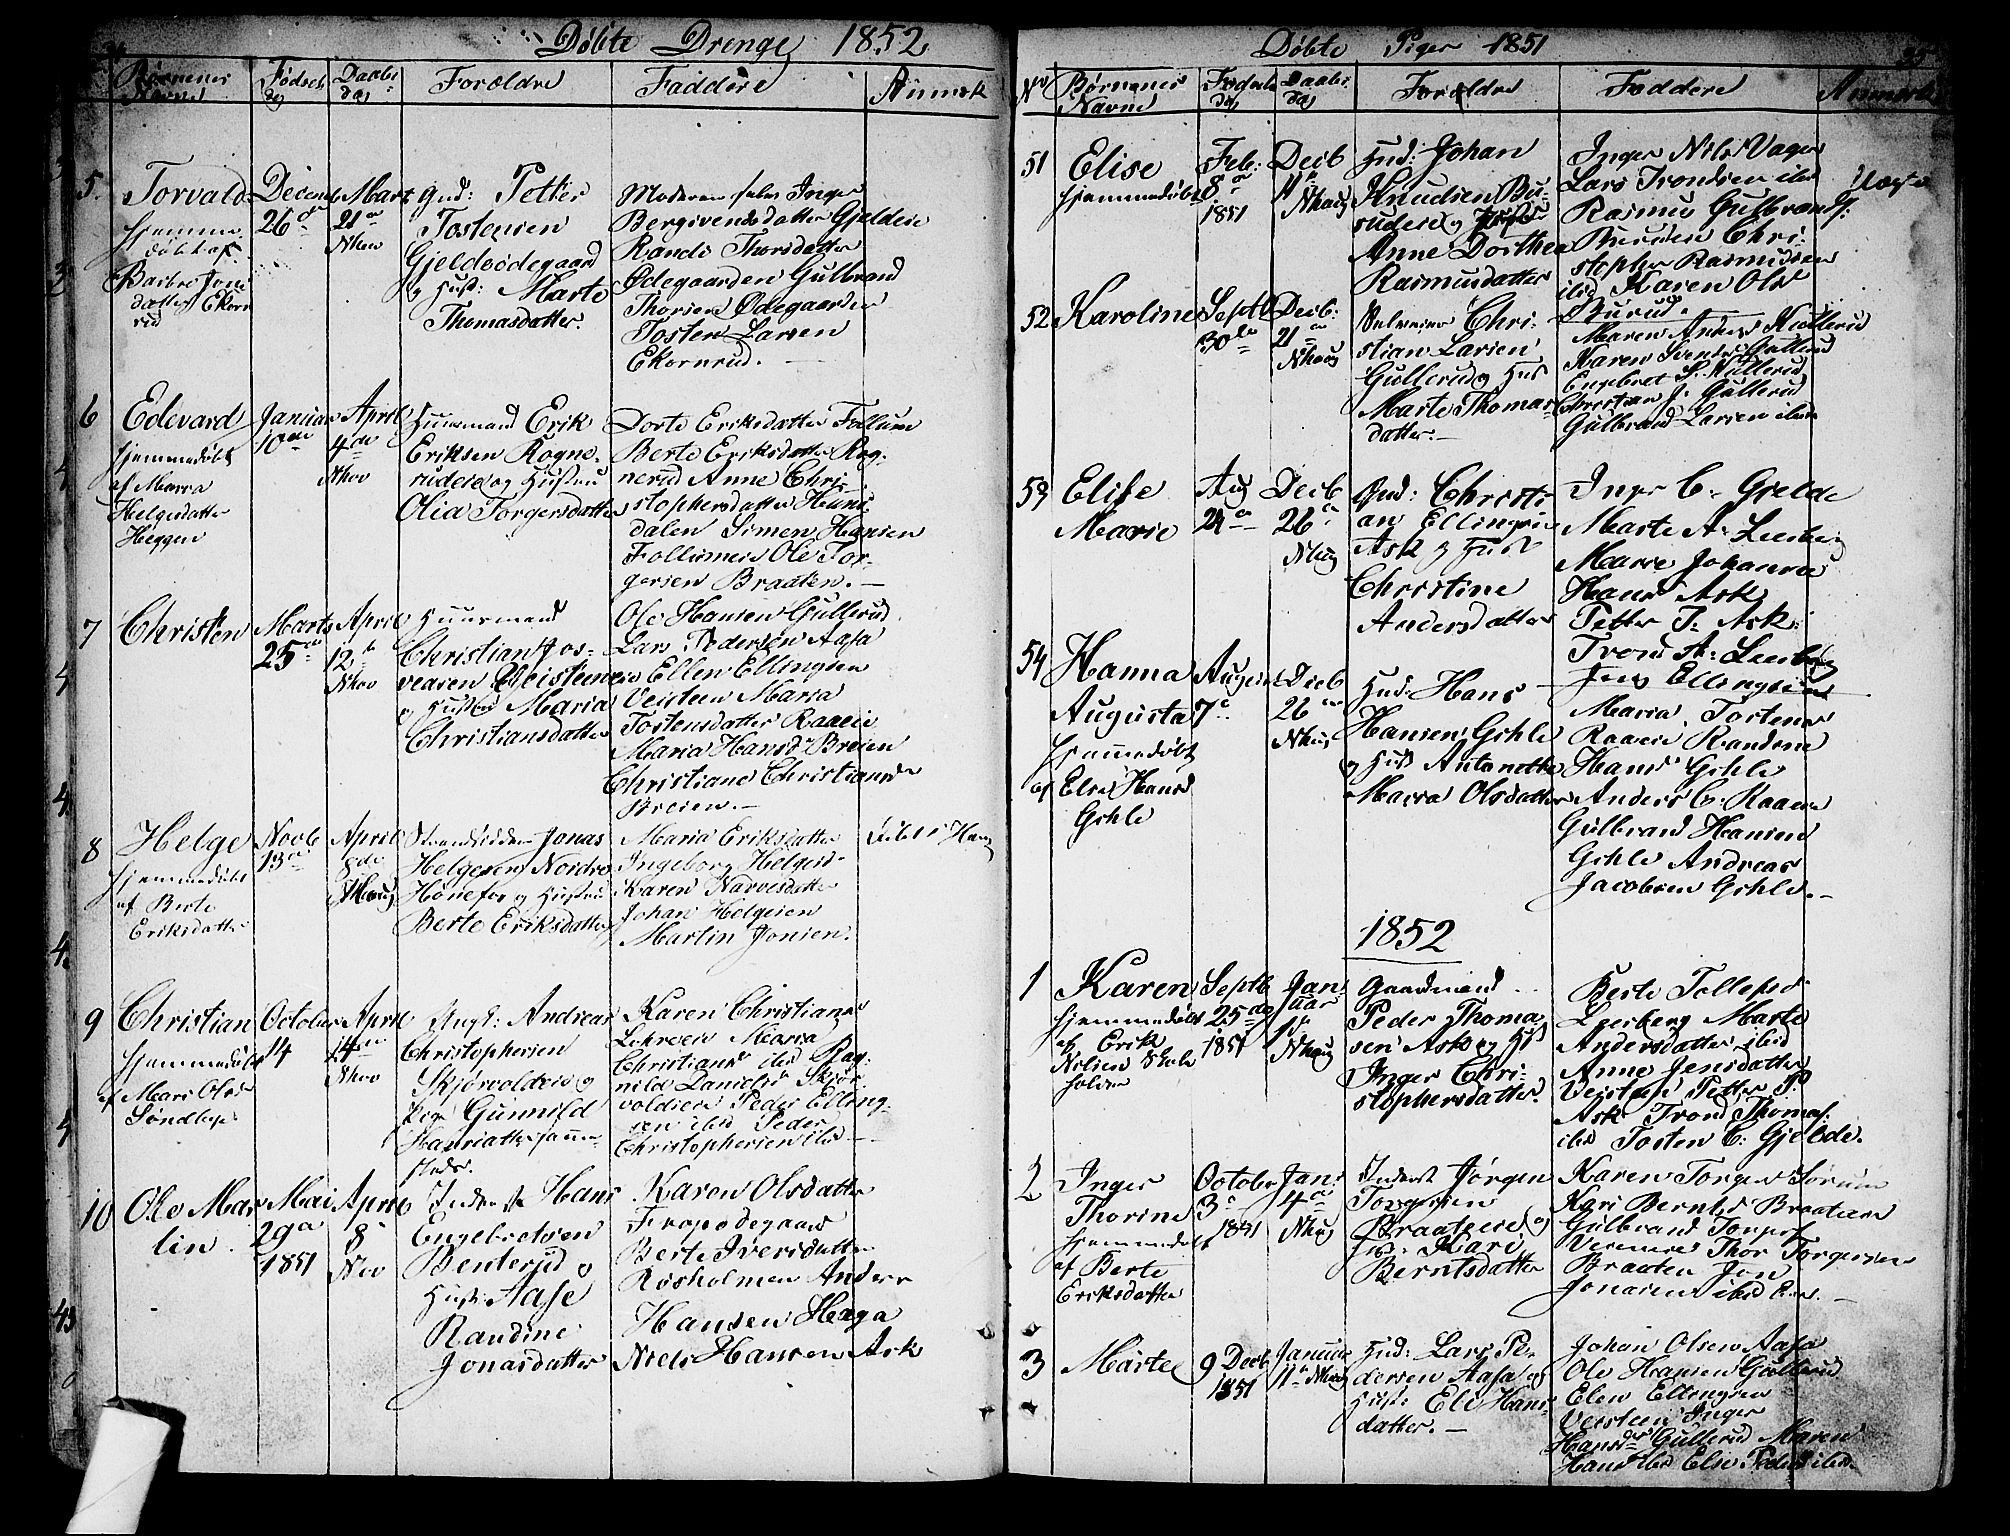 Døbte Drenge 1852
Børnenes Navne
Fødsels dag
Daabs dag
Forældre
Faddere
Anmærk
5.
Torvald
hjemme
døbt af
Barbro Jons
datter Ekorn
rud
Decemb
26de
Mart
21de
Nhov
gmd: Petter
Tostensen
Gjeldsødegaard
og Hust: Marte
Thomasdatter.
Moderen selv Inger
Bergivendsdatter Gjeldeie
Randi Thorsdatter
Ødegaarden Gulbrand
Thorsen Ødegaarden
Tosten Larsen
Ekornrud. —
6
Edevard
hjemmedøbt
af Maria
Helgesdatter
Heggen
Januar
10de
April
4de
Nhov
Huusmand Erik
Eriksen Rogne-
rudeie og Hustru
Olia Torgersdatter
Dorte Eriksdatter Follum
Berte Eriksdatter Rog-
nerud Anne Chri-
stophersdatter Huns
dalen Simen Hansen
Follumeie Ole Tor-
gersen Braaten. —
7
Christen
Marts
25de
April
12te
Nhov
Huusmand
Christian
og Hustru Maria
Christiansdatter
Ole Hansen Gullerud
Lars Pedersen Aasa
Ellen Ellingsen
Veisteen Maria
Tostensdatter Raaeie
Maria Hansd Breien
Christiane Christiansd
Breien. —
8
Helge
hjemmedøbt
af Berte
Eriksdatter
Novb
13de
April
8de
Nhoug
Strandsidder Jonas
Helgesen Nordre
Hønefos og Hustru
Berte Eriksdatter
Maria Eriksdatter
Ingeborg Helgesd
Karen Narvesdatter
Johan Helgesen
Martin Jonsen.
9
Christian
hjemmedøbt
af Mari Ols
Søndbye
October
14
April
14de
Nhov
Ungk: Andreas
Christophersen
Skjørvoldeie og
Pige Gunnild
Hansdatter sammen-
steds.
Karen Christians
Lehreeie Maria
Christiansd ibid Rag-
nild Danielsd Skjør
voldeie Peder Elling-
sen ibid Peder
Christophersen ibid —
10
Ole Mar
tin.
Mai
29de
1851
April
8
Nov
Inderst Hans
Engebretsen
Benterud og
Hust: Aase
Randine
Jonasdatter
Karen Olsdatter
Frogødegaard
Berte Iversdatter
Rosholmen Anders
Hansen Haga
Niels Hansen Ask
Døbte Piger 1851
35
No
Børnenes Navne
Fødsels dag
Daabs dag
Forældre
Faddere
Anmærk
51
Elise
hjemmedøbt
Feb:
8de
1851
Decb
4de
Nhoug
Hmd: Johan
Knudsen Bu-
rudeie og
Anne Dorthea
Rasmusdatter
Inger Nils Vager
Lars Trondsen ibid
Rasmus Gulbrands
Burudeie Chri-
stopher Rasmussen
ibid Karen Ols
Burud.
52
Karoline
Septb
30de
Decb:
21de
Nhoug
Selveier Chri-
stian Larsen
Gullerud og Hust
Marte Thomas
datter. —
Maren Anders Kullerud
Karen Svends Gullerud
Engebret S. Kullerud
Christian J. Gullerud
Gulbrand Larsen ibid
53
Elise
Marie
Aug
24de
Decb
26de
Nhoug
Gmd: Christi
an Ellingsen
Ask og Hust
Christine
Andersdatter
Inger C. Gjelde
Marte A. Leerberg
Marie Johanna
Hans Ask
Petter J. Ask.
Trond A. Leerberg
Jens Ellingsen
54
Hanna
Augusta
hjemmedøbt
af Else Hansd
Gihle
August
7de
Decb
26de
Nhoug
Hmd: Hans
Hansen Gihle
og Hust Antonette
Maria Olsdatter
Maria Tostens
Raaeie Randine
Hans Gihle
Anders C. Raaeie
Gulbrand Hansen
Gihle Andreas
Jacobsen Gihle. —
1852
1
Karen
hjemmedøbt
af Erik
Nilsen Skole
holder
Septb
25de
1851
Jan
uar
1ste
Nhoug
Gaardmand
Peder Thoma
sen Ask og Hust
Inger Chri-
stophersdatter.
Berte Tollefsd
Leerberg Marte
Andersdatter ibid
Anne Jensdatter
Petter P
Ask Trond Thomas:
ibid Tosten C. Gjelde.
2
Inger
Thorine
hjemmedøbt
af Berte
Eriksdatter
October
3de
1851
Jan:
4de
Nhoug
Inderst Jørgen
Torgersen
Braateeie og
Hust: Kari
Berntsdatter
Karen Torgers Sørum
Kari Bernts Braateeie
Gulbrand Torgers
Thor Torgersen
Braaten Jon
Jonasen ibid
3
Marte
9 Decb
1851
Januar
11te Nhoug
Hmd: Lars Pe-
dersen Aasa og
Hust: Eli Hans-
datter. —
Johan Olsen Aasa
Ole Hansen Gullerud
Elen Ellingsen
Veisteen Inger
Hansdr Gullerud Maren
Hans ibid Else Peders ibid.